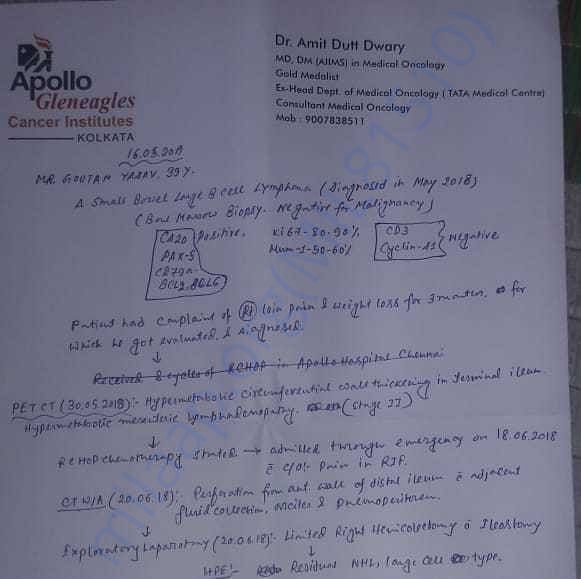 Apollo
Gleneagles
Cancer Institutes
KOLKATA
Dr. Amit Dutt Dwary
MD, DM (AIIMS) in Medical Oncology
Gold Medalist
Ex-Head Dept. of Medical Oncology ( TATA Medical Centre)
Consultant Medical Oncology
Mob : 9007838511
MR. GOUTAM YADAV, 39Y.
A Small Bowel Large B cell Lymphoma (Diagnosed in May 2018)
(Bone Marrow Biopsy. Negative for Malignancy)
CD20 Positive. Ki67-80-90% CD3 Negative
PAX-5 Mum-1-50-60%
CD79a
BCL2, BCL6
Patient had complaint of (Rt) loin pain & weight loss for 3 months, for
which he got evaluated, & diagnosed.
↓
Received cycles of RCHOP in Apollo Hospital Chennai
PET CT (30.05.2018):- Hypermetabolic circumferential wall thickening in terminal ileum.
Hypermetabolic mesenteric lymphadenopathy. (Stage II)
↓
RCHOP chemotherapy started → admitted through emergency on 18.06.2018
c̄ c/o:- Pain in RIF.
CT W/A (20.06.18):- Perforation from ant. wall of distal ileum c̄ adjacent
fluid collection, ascites & pneumoperitoneum.
↓
Exploratory Laparotomy (20.06.18):- Limited Right Hemicolectomy c̄ Ileostomy
↓
HPE:- Residual NHL, large cell type.